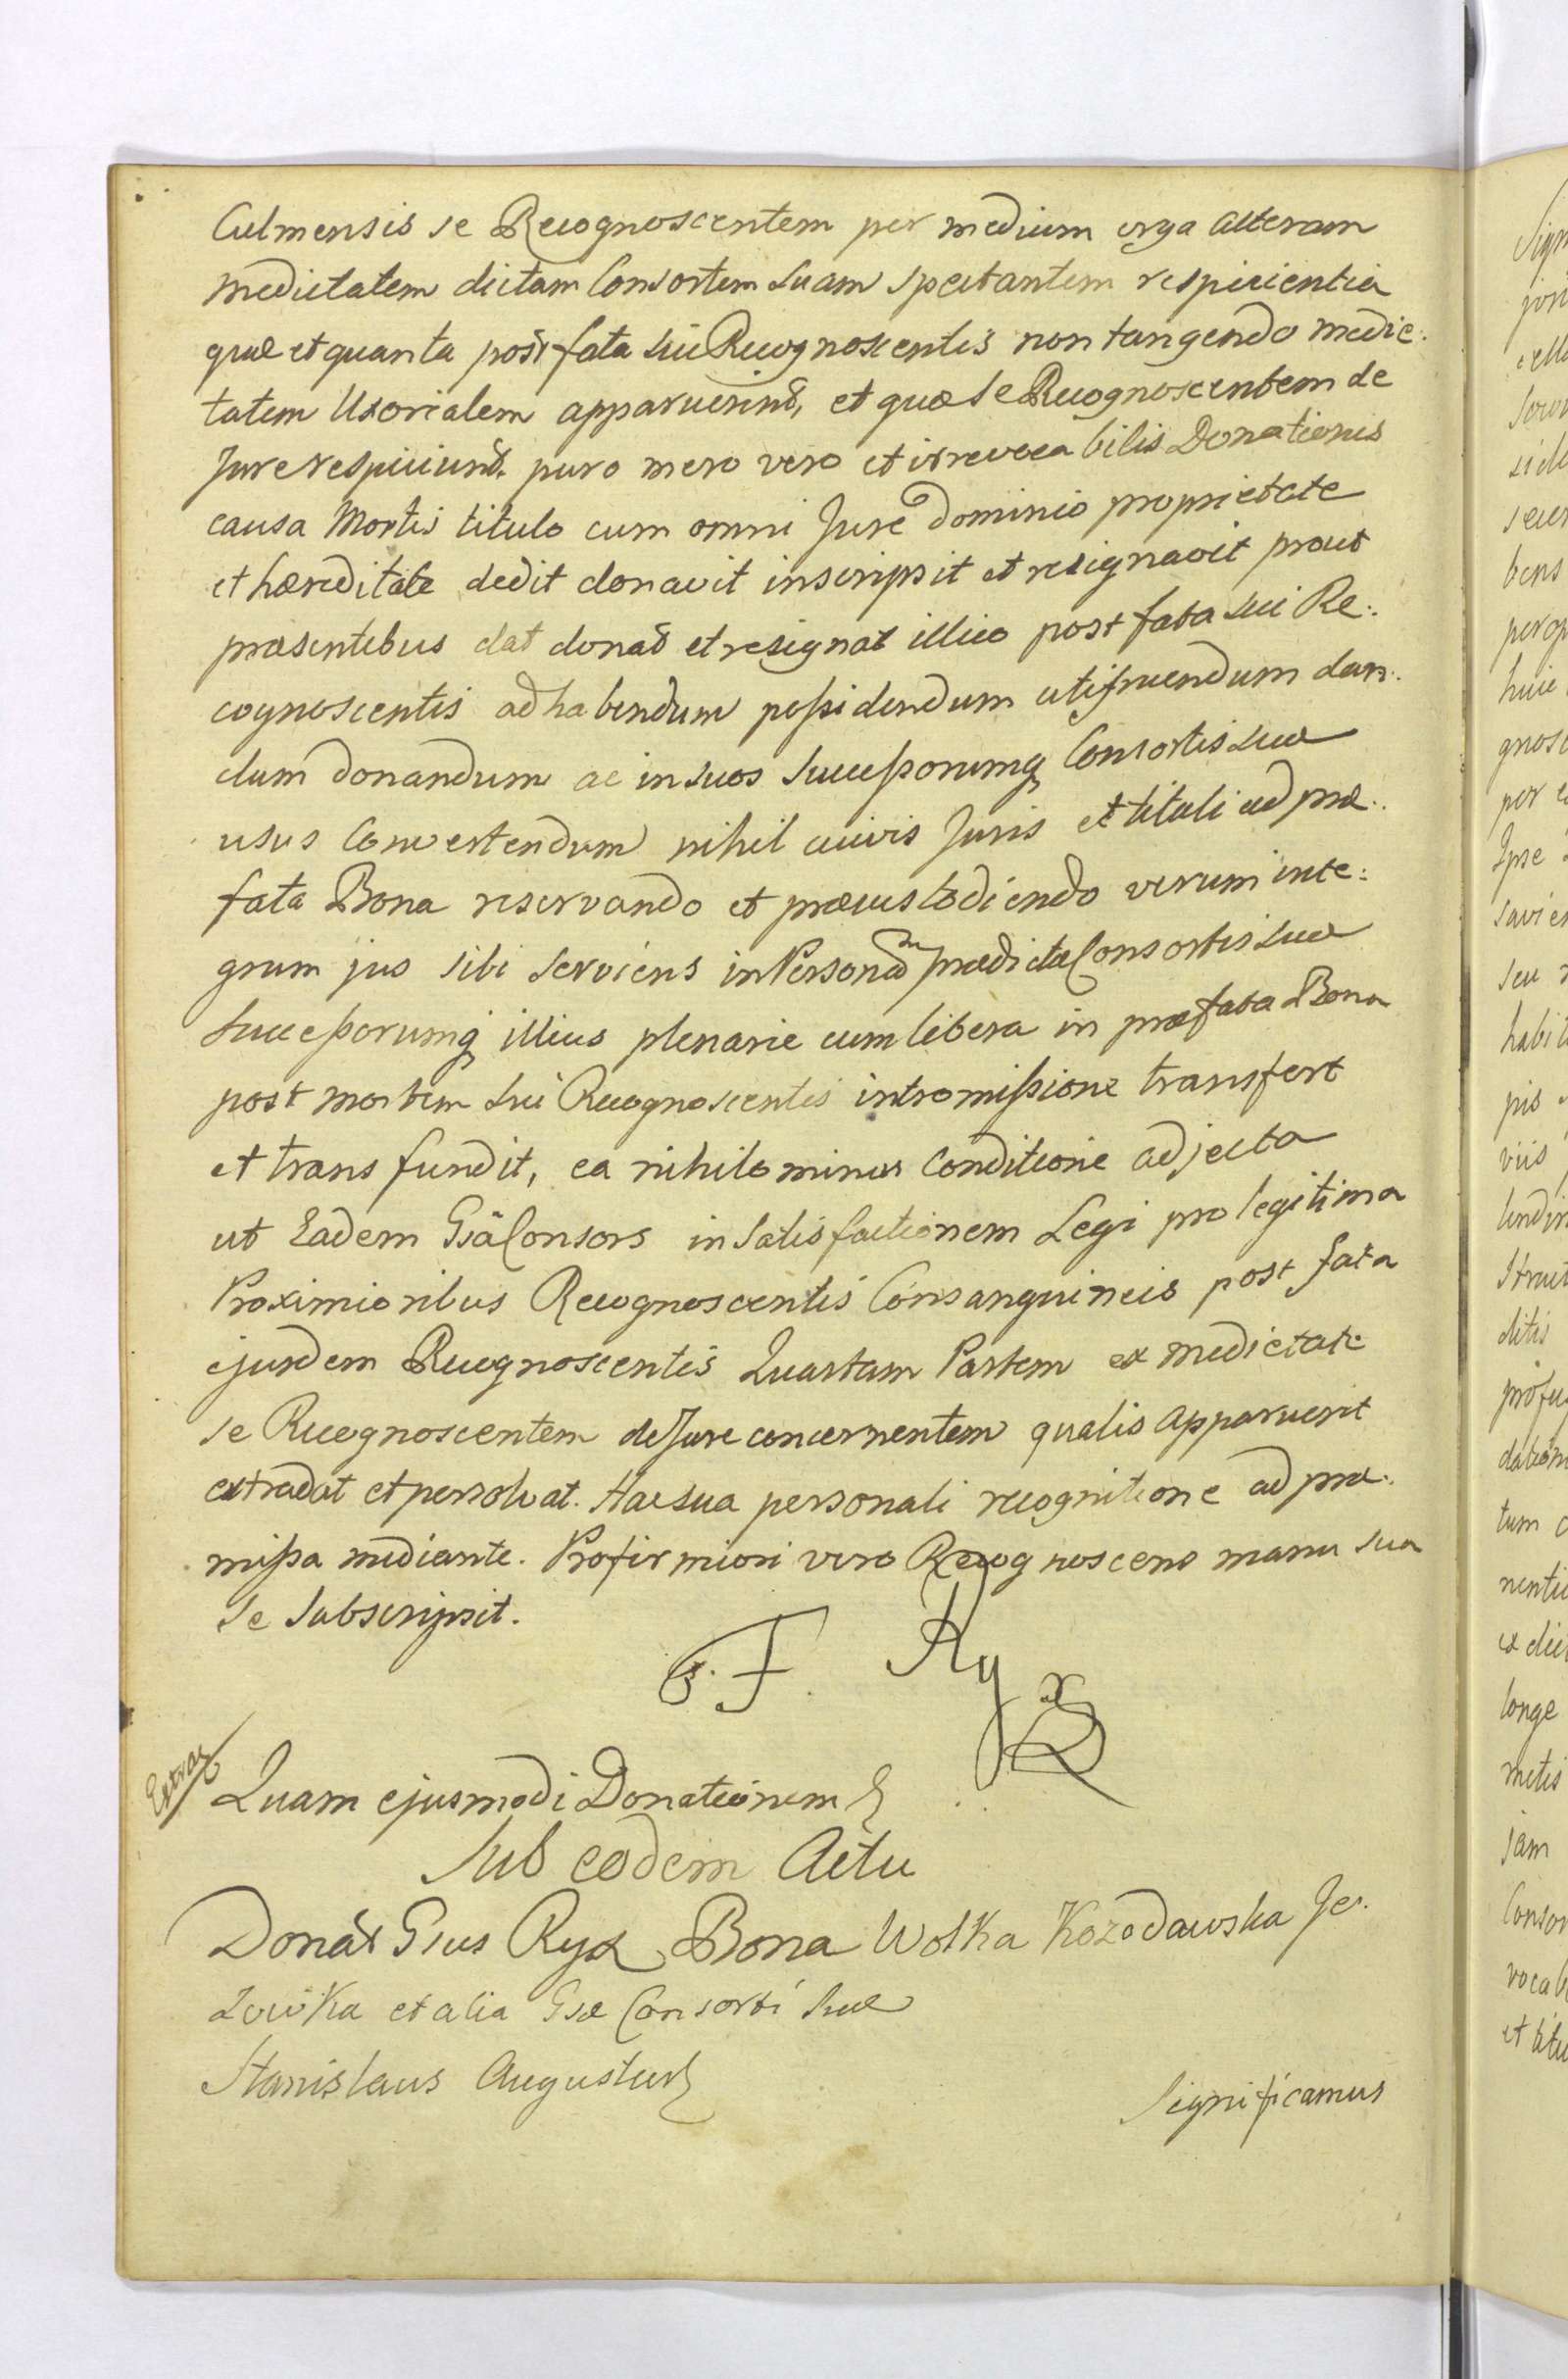 Culmensis se Recognoscentem per medium erga alteram
medietatem dictam Consortem Suam spectantem respicientia
quæ et quanta post fata sui Recognoscentis non tangendo medie:
tatem Uxorialem apparuerint, et quæ se Recognoscentem de
Jure respiciunt. puro mero vero et irrevocabilis Donationis
causa Mortis titulo cum omni Jure dominio proprietate
et hæreditate dedit donavit inscripsit et resignavit prout
præsentibus dat donat et resignat illico post fata sui Re:
cognoscentis ad habendum possidendum utifruendum dan:
dum donandum ac in suos Successorumq Consortis suæ
usus convertendum nihil cuivis Juris et tituli ad præ:
fata Bona reservando et præcustodiendo verum inte:
grum jus sibi serviens in Personam prædictæ Consortis suæ
Successorumq illius plenarie cum libera in præfata Bona
post mortem sui Recognoscentis intromissione transfert
et transfundit, ea nihilominus conditione adjecta
ut Eadem Gsa Consors in Satisfactionem Legi pro legitima
Proximioribus Recognoscentis Consanguineis post fata
ejusdem Recognoscentis Quartam Partem ex medietate
se Recognoscentem de Jure concernentem qualis apparuerit
extradat et persolvat. Hac sua personali recognitione ad præ:
missa mediante. Profirmiori vero Recognoscens manu sua
se Subscripsit.
F. Ryx
Extrad
Quam ejusmodi Donationem
Sub eodem Actu
Donat Gsus Ryx Bona Wolka Kozodawska Je:
ziowka et alia Gsæ Consorti suæ
Stanislaus Augustus
Significamus